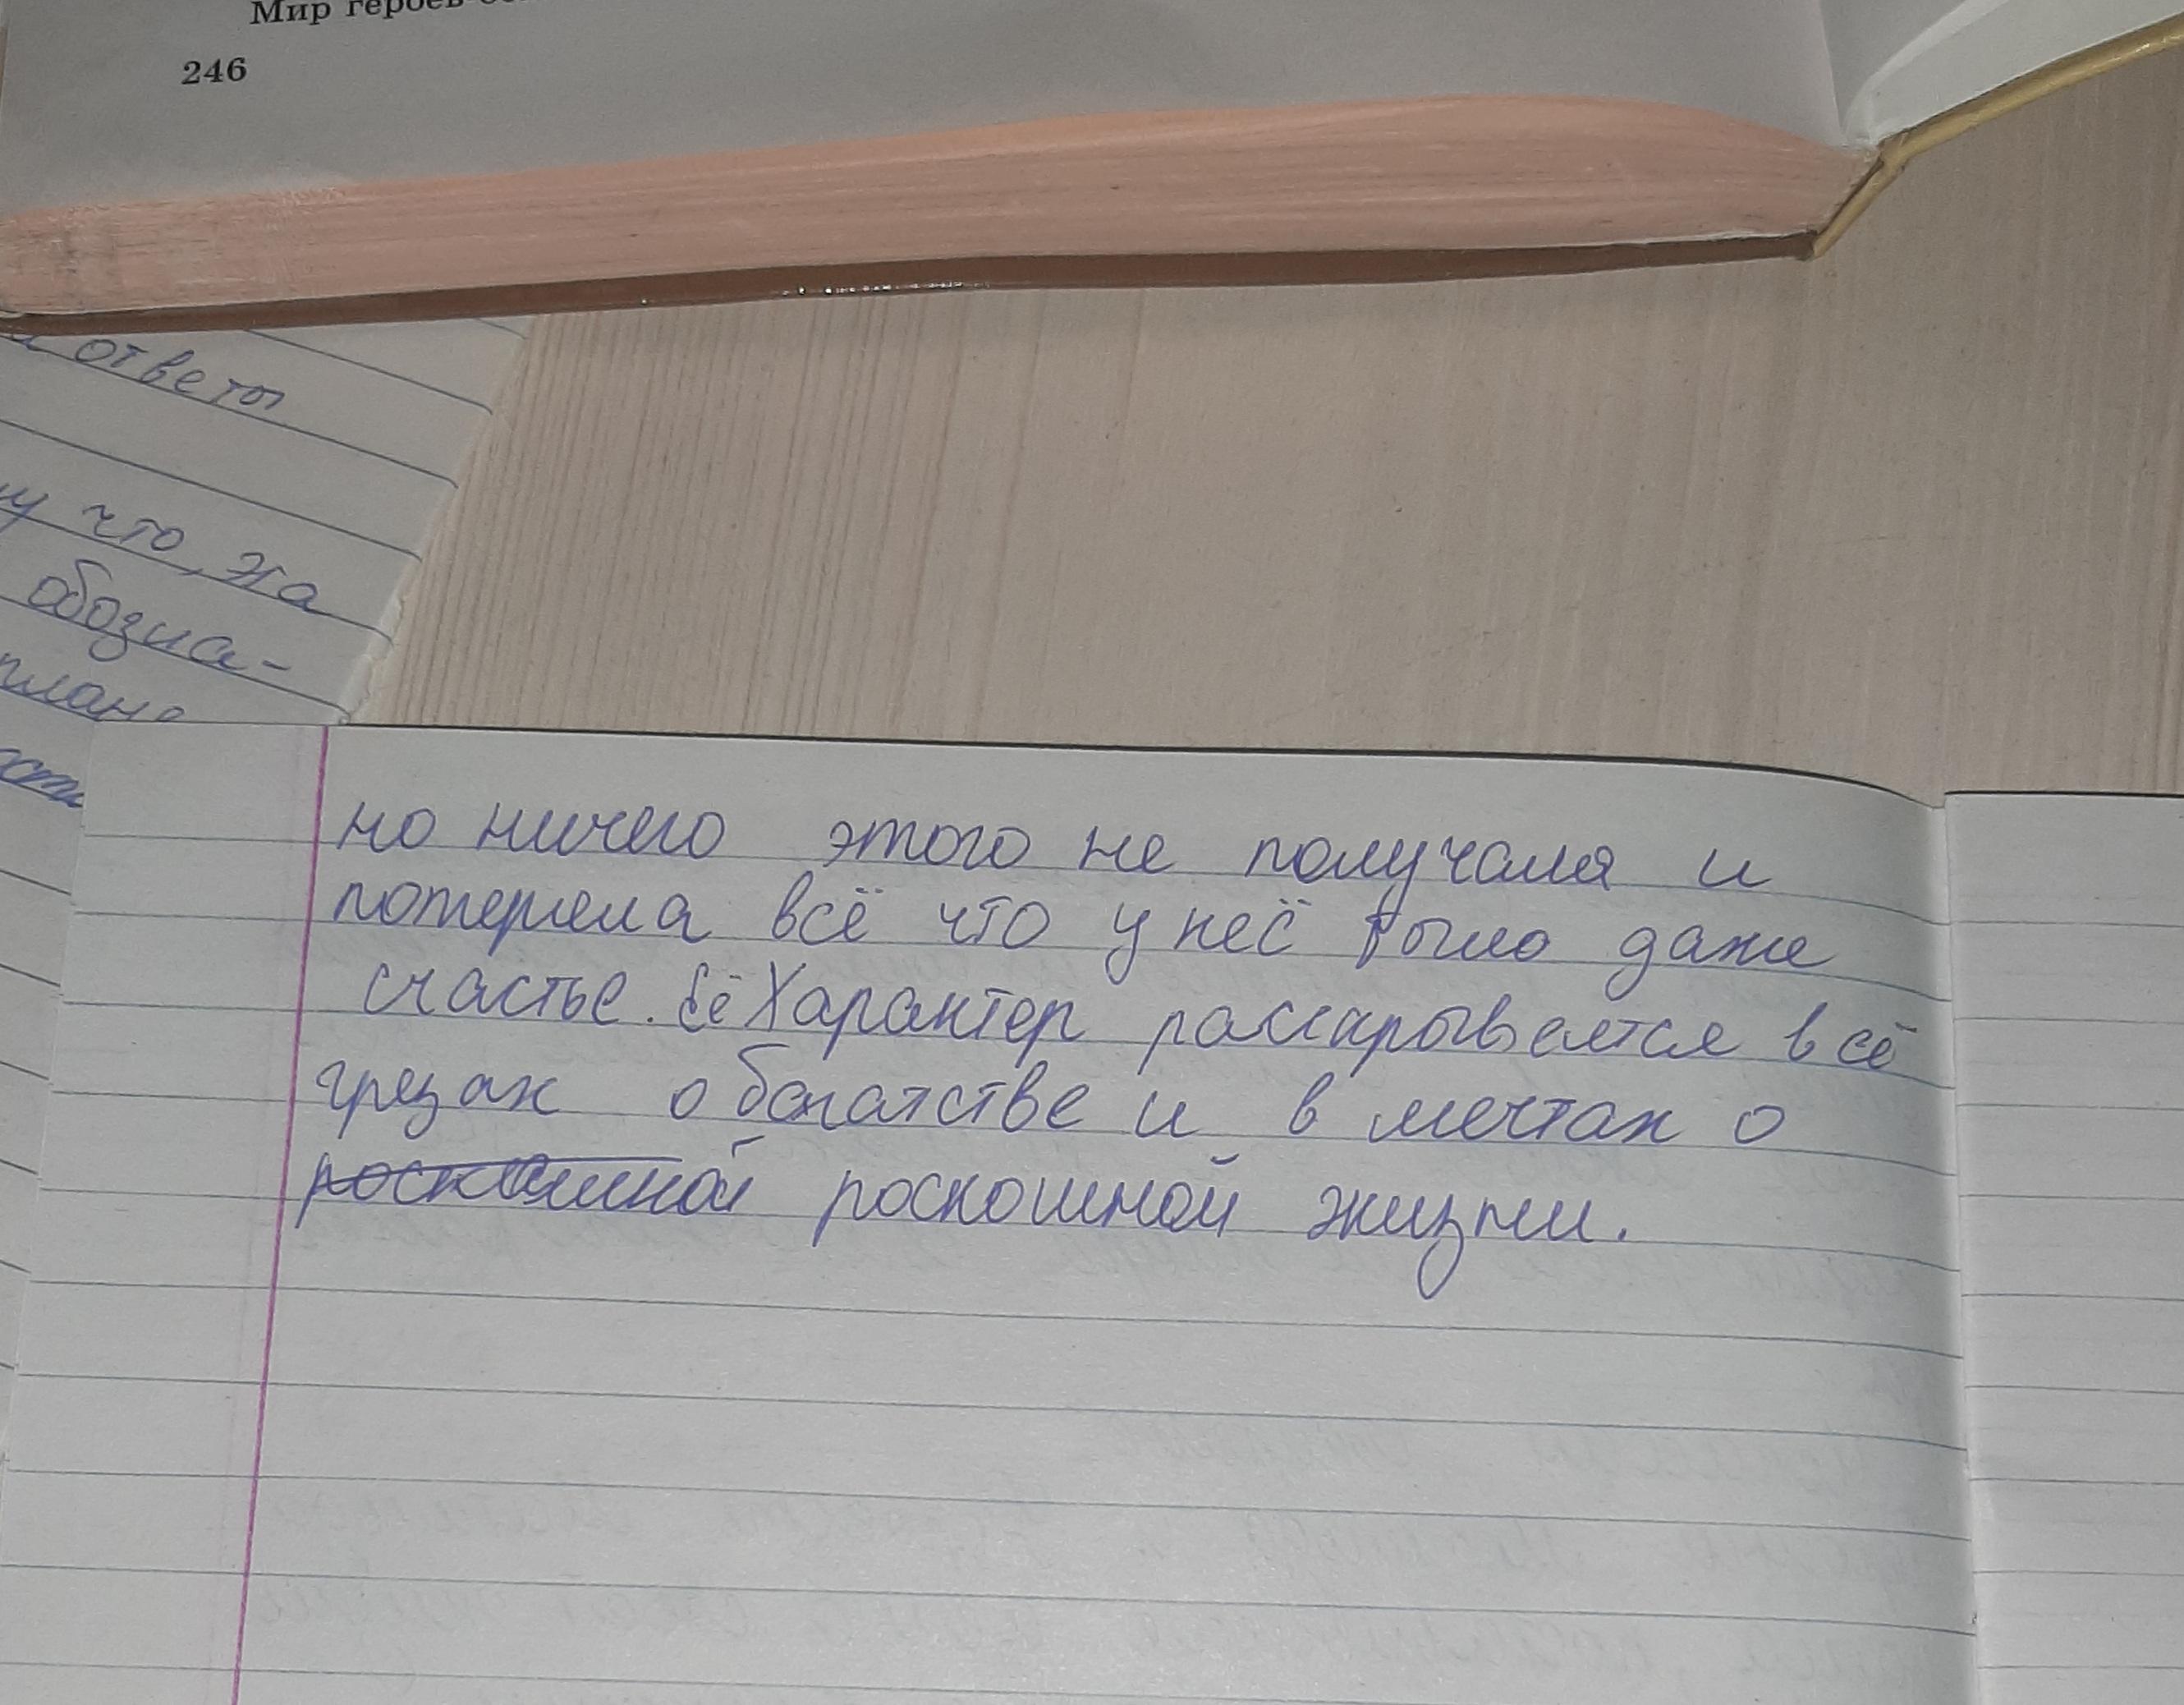 Мир героев
246
ответы
что на
обозна-
плане
но ничего этого не получала и
потеряла всё что у неё было даже
счастье. Её Характер раскрывается в её
грезах о богатстве и в мечтах о
роскошной роскошной жизни.